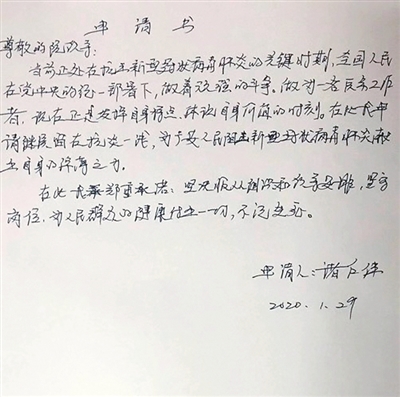 申请书
尊敬的院领导:
当前正处在抗击新型冠状病毒肺炎的关键时期,全国人民
在党中央的统一部署下,做着顽强的斗争。做为一名医务工作
者,现在正是发挥自身特点,体现自身价值的时刻。在此我申
请继续留在抗炎一线,为人民阻击新型冠状病毒肺炎献
出自身的绵薄之力。
在此我郑重承诺:坚决服从组织和领导安排,坚守
岗位,为人民群众的健康付出一切,不论生死。
申请人:
2020.1.29